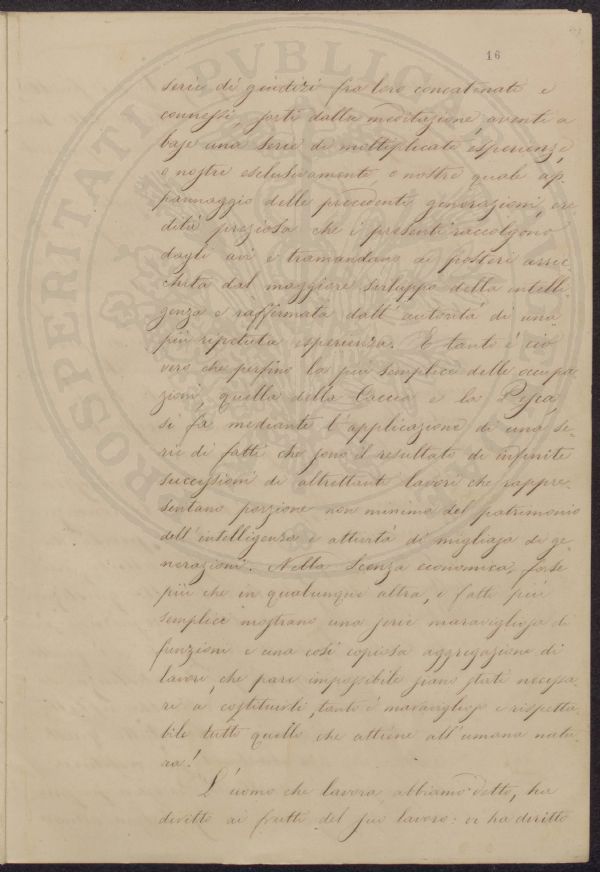 16
serie di giudizi fra loro concatenati e
connessi, sorti dalla meditazione, aventi a
base una serie di moltiplicate esperienze,
o nostre esclusivamente o nostre quale ap-
pannaggio delle precedenti generazioni, ere-
dità preziosa che i presenti raccolgono
dagli avi e tramandano ai posteri arric-
chita dal maggiore sviluppo della intelli-
genza e raffermata dall'autorità di una
più ripetuta esperienza. E tanto è ciò
vero che perfino la più semplice delle occupa-
zioni, quella della Caccia e la Pesca,
si fà mediante l'applicazione di una se-
rie di fatti che sono il resultato di infinite
successioni di altrettanti lavori che rappre-
sentano porzione non minima del patrimonio
dell'intelligenza e attività di migliaja di ge-
nerazioni. Nella Scenza economica, forse
più che in qualunque altra, i fatti più
semplici mostrano una serie maravigliosa di
funzioni e una così copiosa aggregazione di
lavori, che pare impossibile siano stati necessa-
ri a costituirli, tanto è maraviglioso e rispetta-
bile tutto quello che attiene all'umana natu-
ra!
L'uomo che lavora, abbiamo detto, ha
diritto ai frutti del suo lavoro: vi ha diritto
PROSPERITATI PVBLICAE